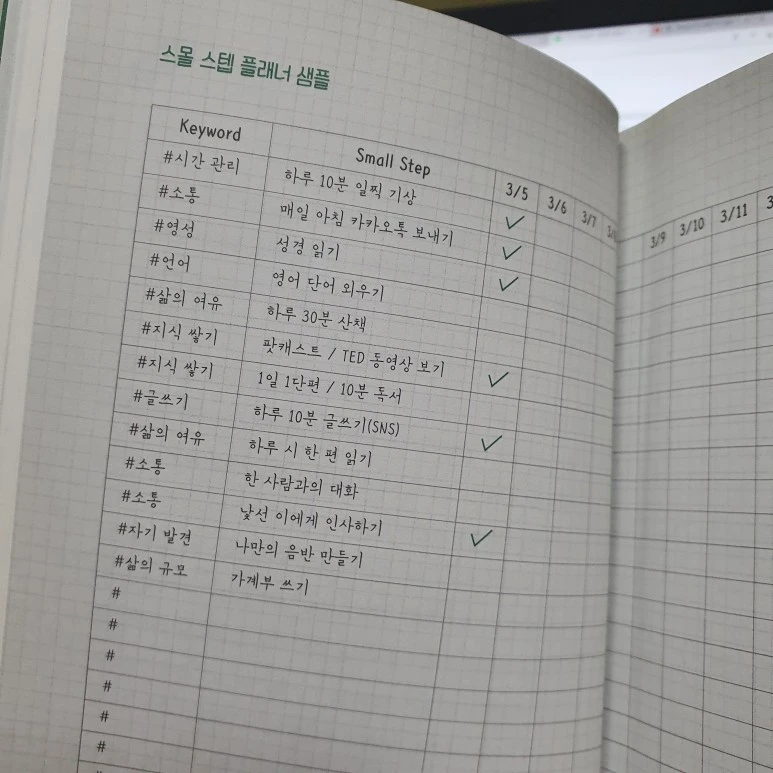 스몰 스텝 플래너 샘플
Keyword Small Step 3/5 3/6 3/7 3/9 3/10 3/11
#시간 관리 하루 10분 일찍 기상 ✓
#소통 매일 아침 카카오톡 보내기 ✓
#영성 성경 읽기 ✓
#언어 영어 단어 외우기
#삶의 여유 하루 30분 산책
#지식 쌓기 팟캐스트 / TED 동영상 보기 ✓
#지식 쌓기 1일 1단편 / 10분 독서
#글쓰기 하루 10분 글쓰기(SNS) ✓
#삶의 여유 하루 시 한 편 읽기
#소통 한 사람과의 대화
#소통 낯선 이에게 인사하기 ✓
#자기 발견 나만의 음반 만들기
#삶의 규모 가계부 쓰기
#
#
#
#
#
#